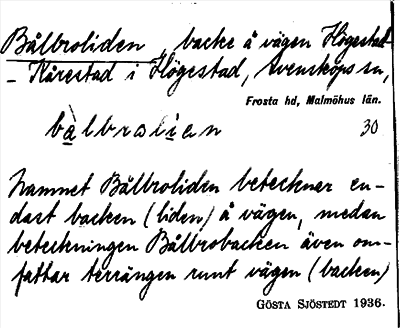 Bålbroliden, backe å vägen Högestad
- Kårestad i Högestad, Svensköps sn,
Frosta hd, Malmöhus län.
bålbrolien 30
Namnet Bålbroliden betecknar en-
dast backen (liden) å vägen, medan
beteckningen Bålbrobacken även om-
fattar terrängen runt vägen (backen)
GÖSTA SJÖSTEDT 1936.